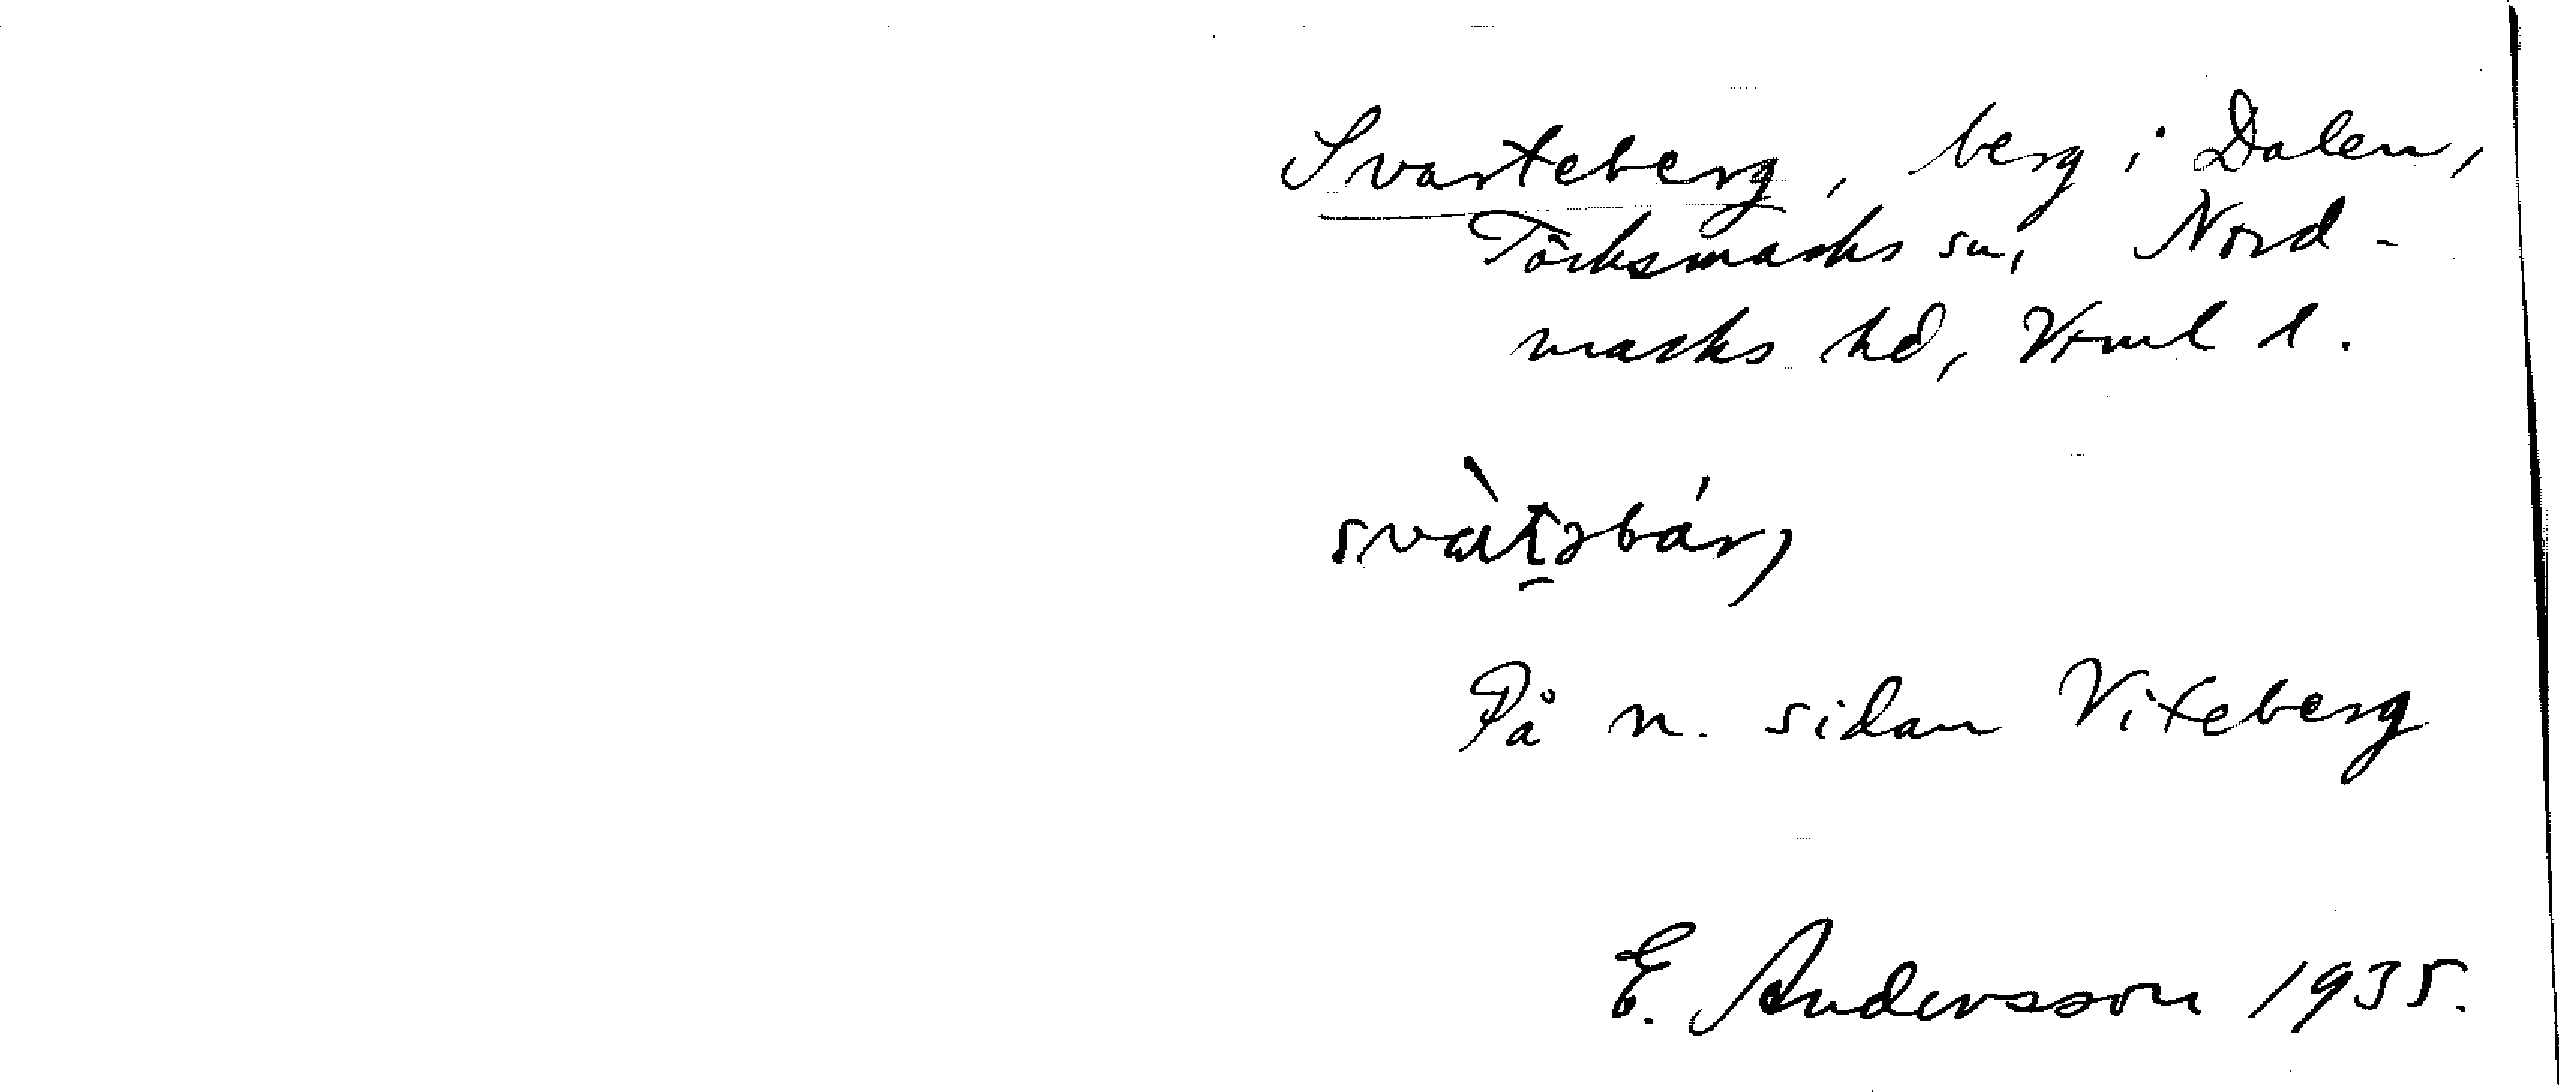 Svarteberg, berg i Dalen,
Töcksmarks sn, Nord-
marks hd, Vrml l.
På n. sidan Viteberg
E. Andersson 1935.